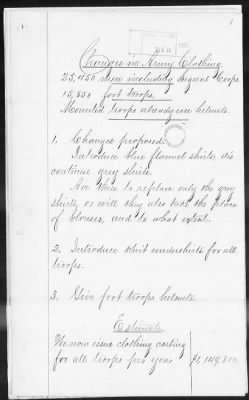 Changes in Army Clothing.
25,450 men including Signal Corps
15,850 foot troops.
Mounted troops already use helmets.
1. Changes proposed.
Introduce blue flannel shirts, dis
continue grey shirts.
Are these to replace only the grey
shirts, or will they also take the place
of blouses, and to what extent.
2. Introduce knit undershirts for all
troops.
3. Give foot troops helmets.
Estimate
We now issue clothing costing
for all troops per year